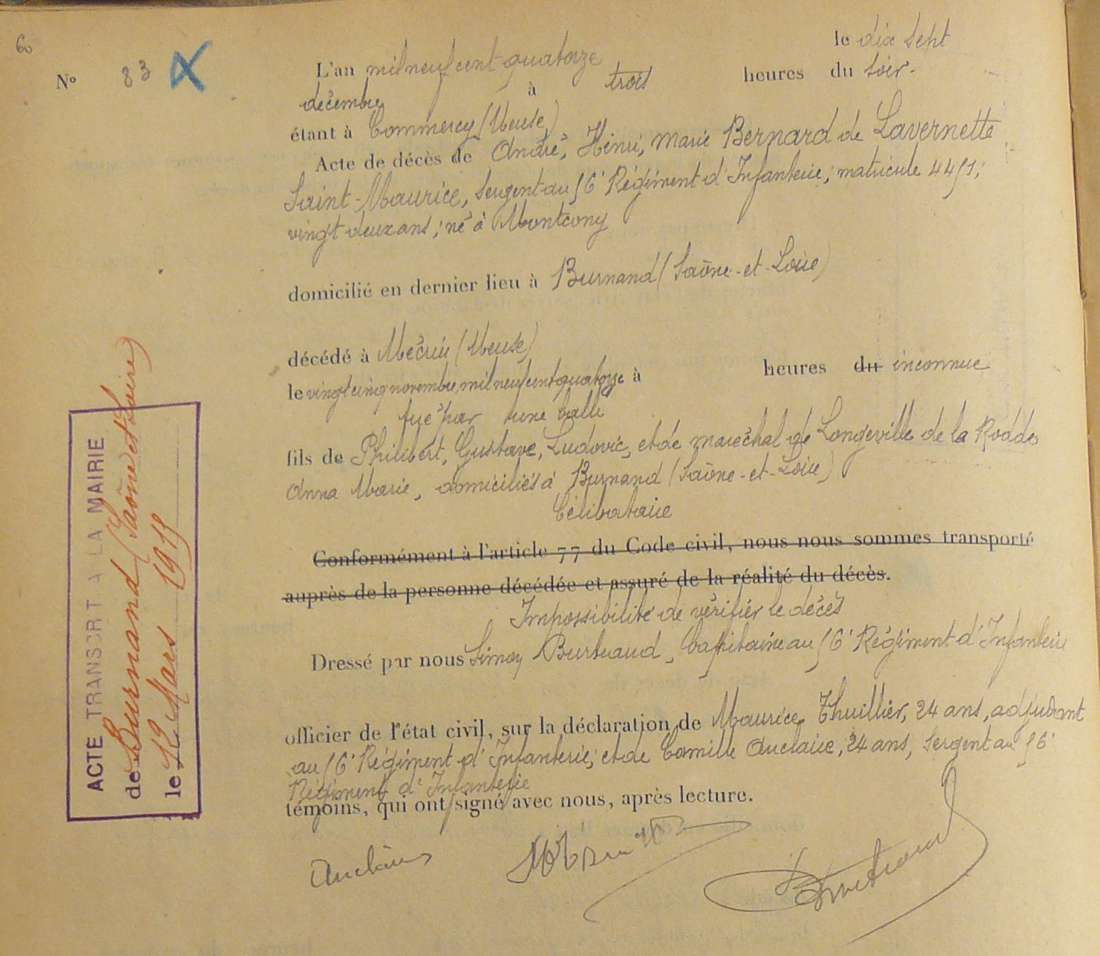 60
N° 83
L'an mil neuf cent quatorze le dix sept
décembre à trois heures du soir.
étant à Commercy (Meuse)
Acte de décès de André, Henri, Marie Bernard de Lavernette
Saint-Maurice, Sergent au 56e Régiment d'Infanterie; matricule 4451;
vingt deux ans; né à Montcony
domicilié en dernier lieu à Burnand (Saône-et-Loire)
décédé à Mécrin (Meuse)
le vingt cinq novembre mil neuf cent quatorze à heures du inconnue
tué par une balle
fils de Philibert, Gustave, Ludovic, et de maréchal de Longeville de la Rodde
Anna Marie, domiciliés à Burnand (Saône-et-Loire)
Célibataire
Conformément à l'article 77 du Code civil, nous nous sommes transporté
auprès de la personne décédée et assuré de la réalité du décès.
Impossibilité de vérifier le décès
Dressé par nous Simon Burtraud, Capitaine au 56e Régiment d'Infanterie
officier de l'état civil, sur la déclaration de Maurice Thuillier, 24 ans, adjudant
au 56e Régiment d'Infanterie; et de Camille Auclaire, 24 ans, Sergent au 56e
Régiment d'Infanterie
témoins, qui ont signé avec nous, après lecture.
Auclaire
ACTE TRANSCRT A LA MAIRIE
de Burnand (Saône et Loire)
le 12 Mars 1915